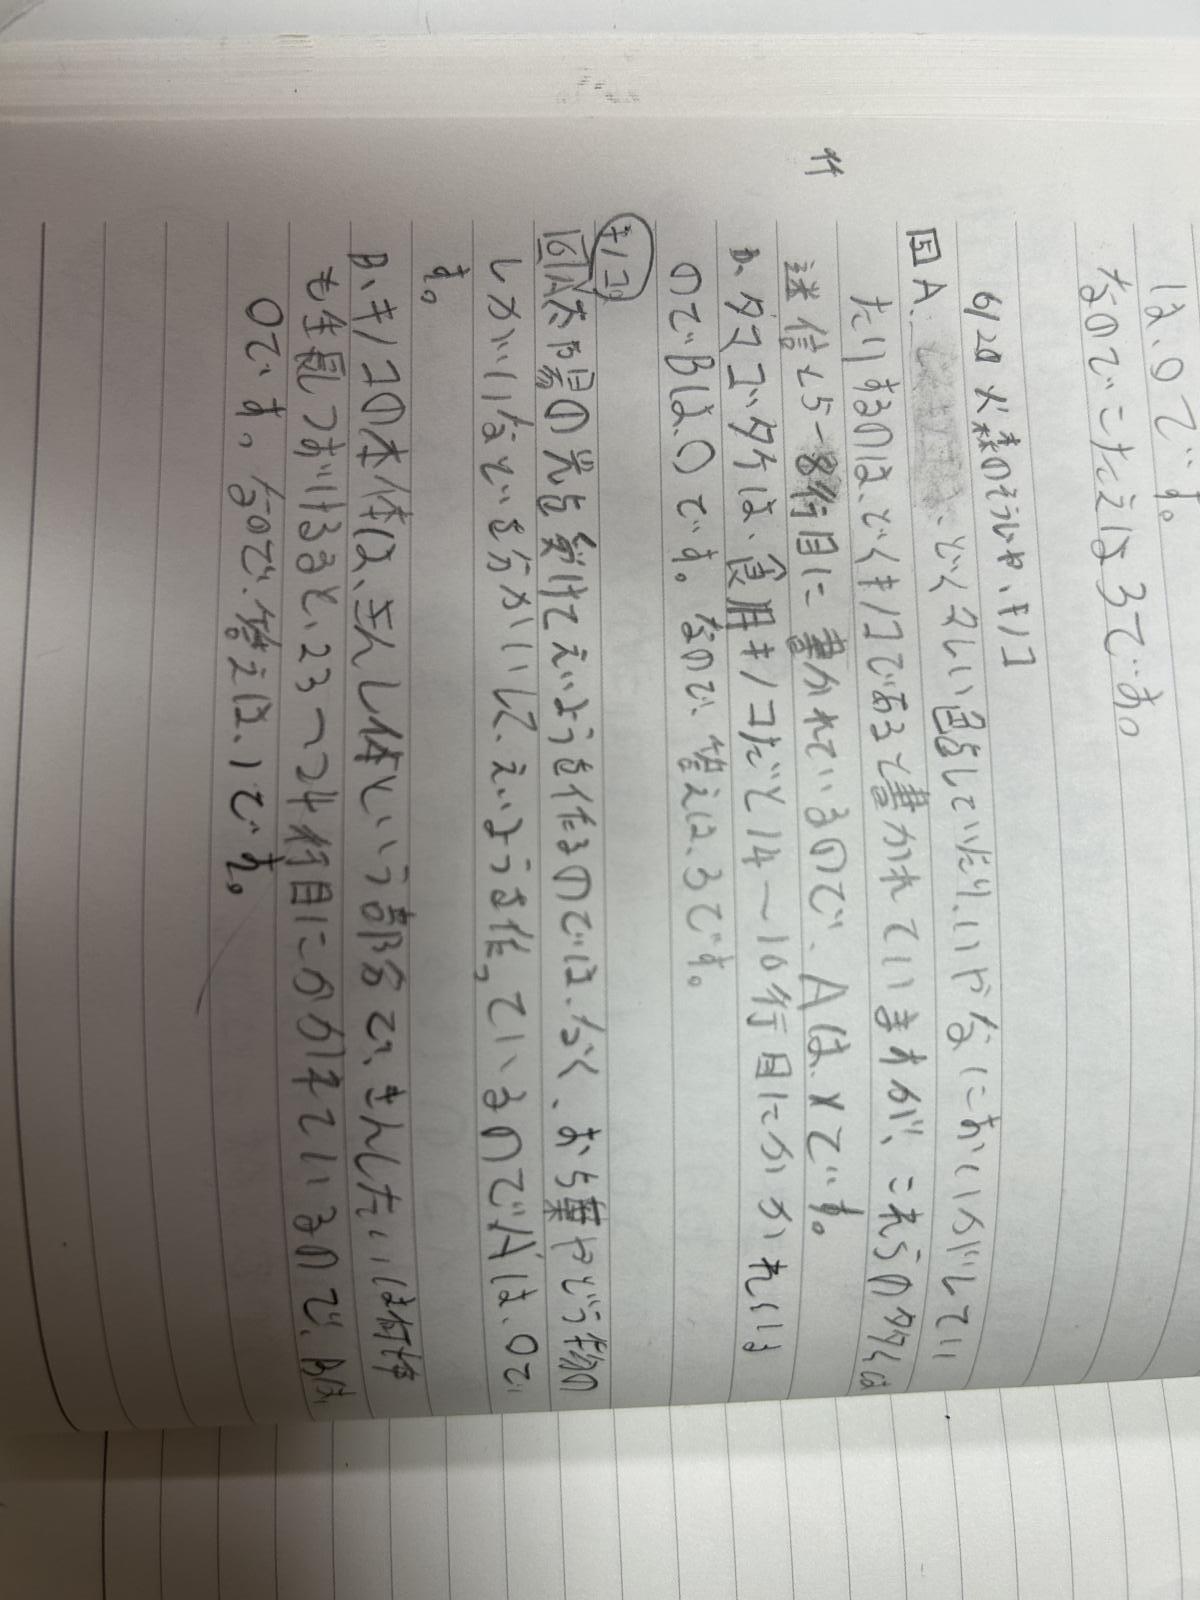 は、〇です。
なのでこたえは3です。
6/20 火 森のそうじや、キノコ
5 A. 、どくろしい色をしていたり、いやなにおいがしてい
たりするのは、どくキノコであると書かれていますが、これらのタイ は
迷信と5〜8行目に書かれているので、Aは、×です。
B、タマゴタケは、食用キノコだと14〜16行目にかかれいは
のでBは、〇です。なので、答えは、3です。
キノコ
6 A 太陽の光を受けてえいようを作るのでは、なく、おち葉やどう物の
しがいなどを分かいして、えいようを作っているのでAは、〇で
す。
B、キノコの本体は、きんし体という部分で、きんしたいは何年
も生長しつづけると、23〜24行目にかかれているので、Bは、
〇です。なので、答えは、1です。